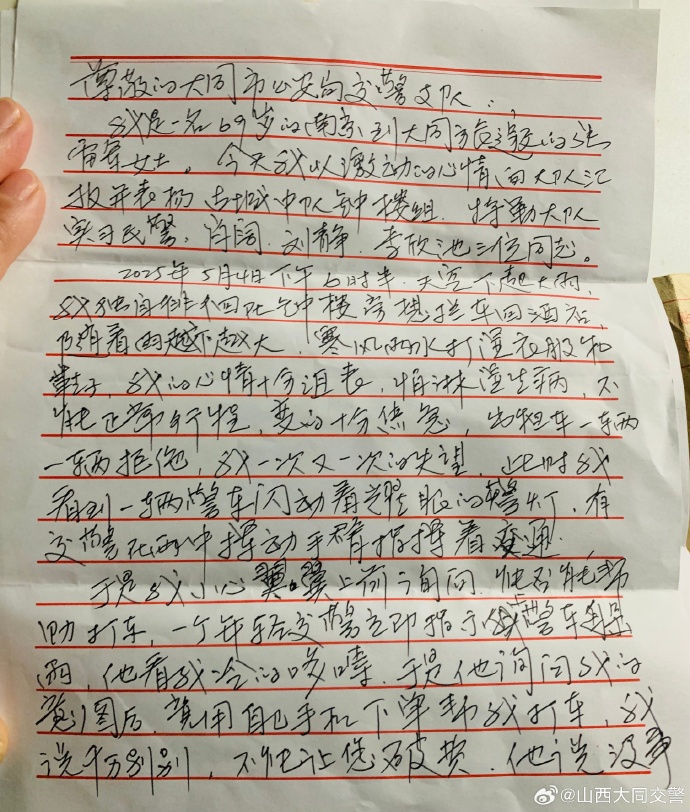 尊敬的大同市公安局交警支队：
我是一名69岁的南京到大同旅游的
女士。今天我以激动的心情向大队汇
报并表扬古城中队钟楼组、特勤大队
实习民警：肖阔、刘静、李欣池三位同志。
2025年5月4日下午6时半，天空下起大雨，
我独自徘徊在钟楼旁想拦车回酒店，
随着雨越下越大，寒风雨水打湿衣服和
鞋子，我的心情十分沮丧，怕淋湿生病，不
能正常行程，变的十分焦急，出租车一辆
一辆拒绝，我一次又一次的失望，此时我
看到一辆警车闪动着耀眼的警灯，有
交警在雨中挥动手臂指挥着交通。
于是我小心翼翼上前询问，能否能帮
助打车，一个年轻交警立即指示我警车避
雨，他看我冷的哆嗦，于是他询问我的
意图后，就用自己手机下单帮我打车，我
说千万别别，不能让您破费，他说没事
@山西大同交警